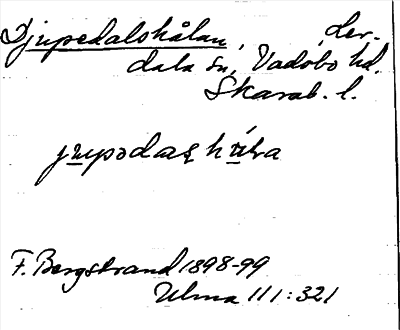 Djupedalshålan, Der-
dala sn, Vadsbo hd.
Skarab. l.
F. Bergstrand 1898-99
Ulma 111:321